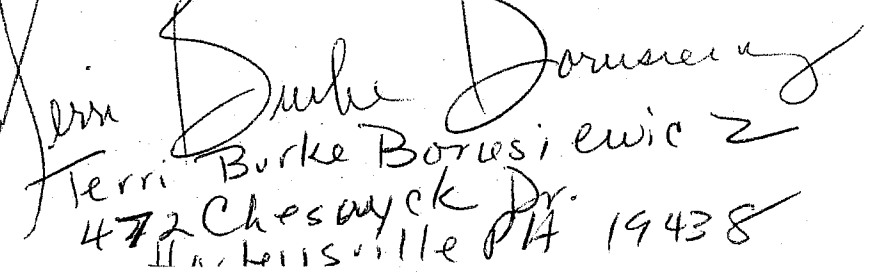 Terri Burke Borusiewicz
Terri Burke Borusiewicz
472 Cheswyck Dr.
PA 19438